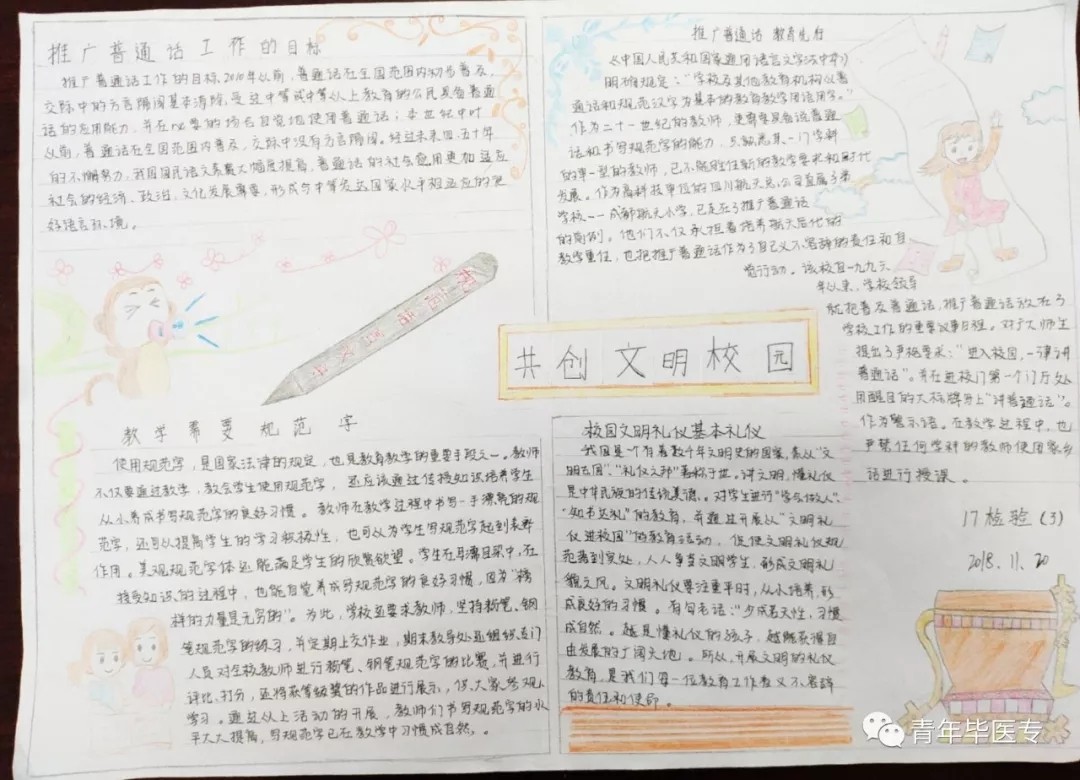 推广普通话工作的目标
推广普通话工作的目标,2010年以前,普通话在全国范围内初步普及,
交际中的方言隔阂基本消除,受过中等或中等以上教育的公民具备普通
话的应用能力,并在必要的场合自觉地使用普通话;本世纪中叶
以前,普通话在全国范围内普及,交际中没有方言隔阂。经过未来四、五十年
的不懈努力,我国国民语文素养大幅度提高,普通话的社会应用更加适应
社会的经济、政治、文化发展需要,形成与中等发达国家水平相适应的良
好语言环境。
推广普通话 教育先行
《中国人民共和国家通用语言文字法中华》
明确规定:“学校及其他教育机构以普
通话和规范汉字为基本的教育教学用语用字。”
作为二十一世纪的教师,更需要具备说普通
话和书写规范字的能力,只熟悉某一门学科
的单一型的教师,已不能胜任新的教学要求和时代
发展。作为高科技单位的四川航天总公司直属子弟
学校——成都航天小学,已走在了推广普通话
的前列。他们不仅承担着培养航天后代的
教学重任,也把推广普通话作为了自己义不容辞的责任和自
觉行动。该校自一九九六
年以来,学校领导
就把普及普通话,推广普通话放在了
学校工作的重要议事日程。对广大师生
提出了严格要求:“进入校园,一律讲
普通话”。并在进校门第一个门厅处
用醒目的大标牌写上“讲普通话”。
作为警示语。在教学过程中,也
严禁任何学科的教师使用家乡
话进行授课。
共创文明校园
教学需要规范字
使用规范字,是国家法律的规定,也是教育教学的重要手段之一。教师
不仅要通过教学,教会学生使用规范字,还应该通过传授知识培养学生
从小养成书写规范字的良好习惯。教师在教学过程中书写一手漂亮的规
范字,还可以提高学生的学习积极性,也可以为学生写规范字起到表率
作用。美观规范字体还能满足学生的欣赏欲望。学生在耳濡目染中,在
接受知识的过程中,也能自觉养成写规范字的良好习惯,因为“榜
样的力量是无穷的”。为此,学校还要求教师,坚持粉笔、钢
笔规范字的练习,并定期上交作业,期末教导处还组织专门
人员对全校教师进行粉笔、钢笔规范字的比赛,并进行
评比、打分,还将获等级奖的作品进行展示,供大家参观、
学习。通过以上活动的开展,教师们书写规范字的水
平大大提高,写规范字已在教学中习惯成自然。。
校园文明礼仪基本礼仪
我国是个有着数千年文明史的国家,素以“文
明古国”、“礼仪之邦”著称于世。讲文明、懂礼仪
是中华民族的传统美德。对学生进行“学会做人”、
“知书达礼”的教育,并通过开展以“文明礼
仪进校园”的教育活动,促使文明礼仪规
范落到实处,人人争当文明学生,形成文明礼
貌之风。文明礼仪要注重平时,从小培养,形
成良好的习惯。有句老话:“少成若天性,习惯
成自然。越是懂礼仪的孩子,越能获得自
由发展的广阔天地。所以,开展文明的礼仪
教育,是我们每一位教育工作者义不容辞
的责任和使命。
17检验(3)
2018.11.20
青年毕医专